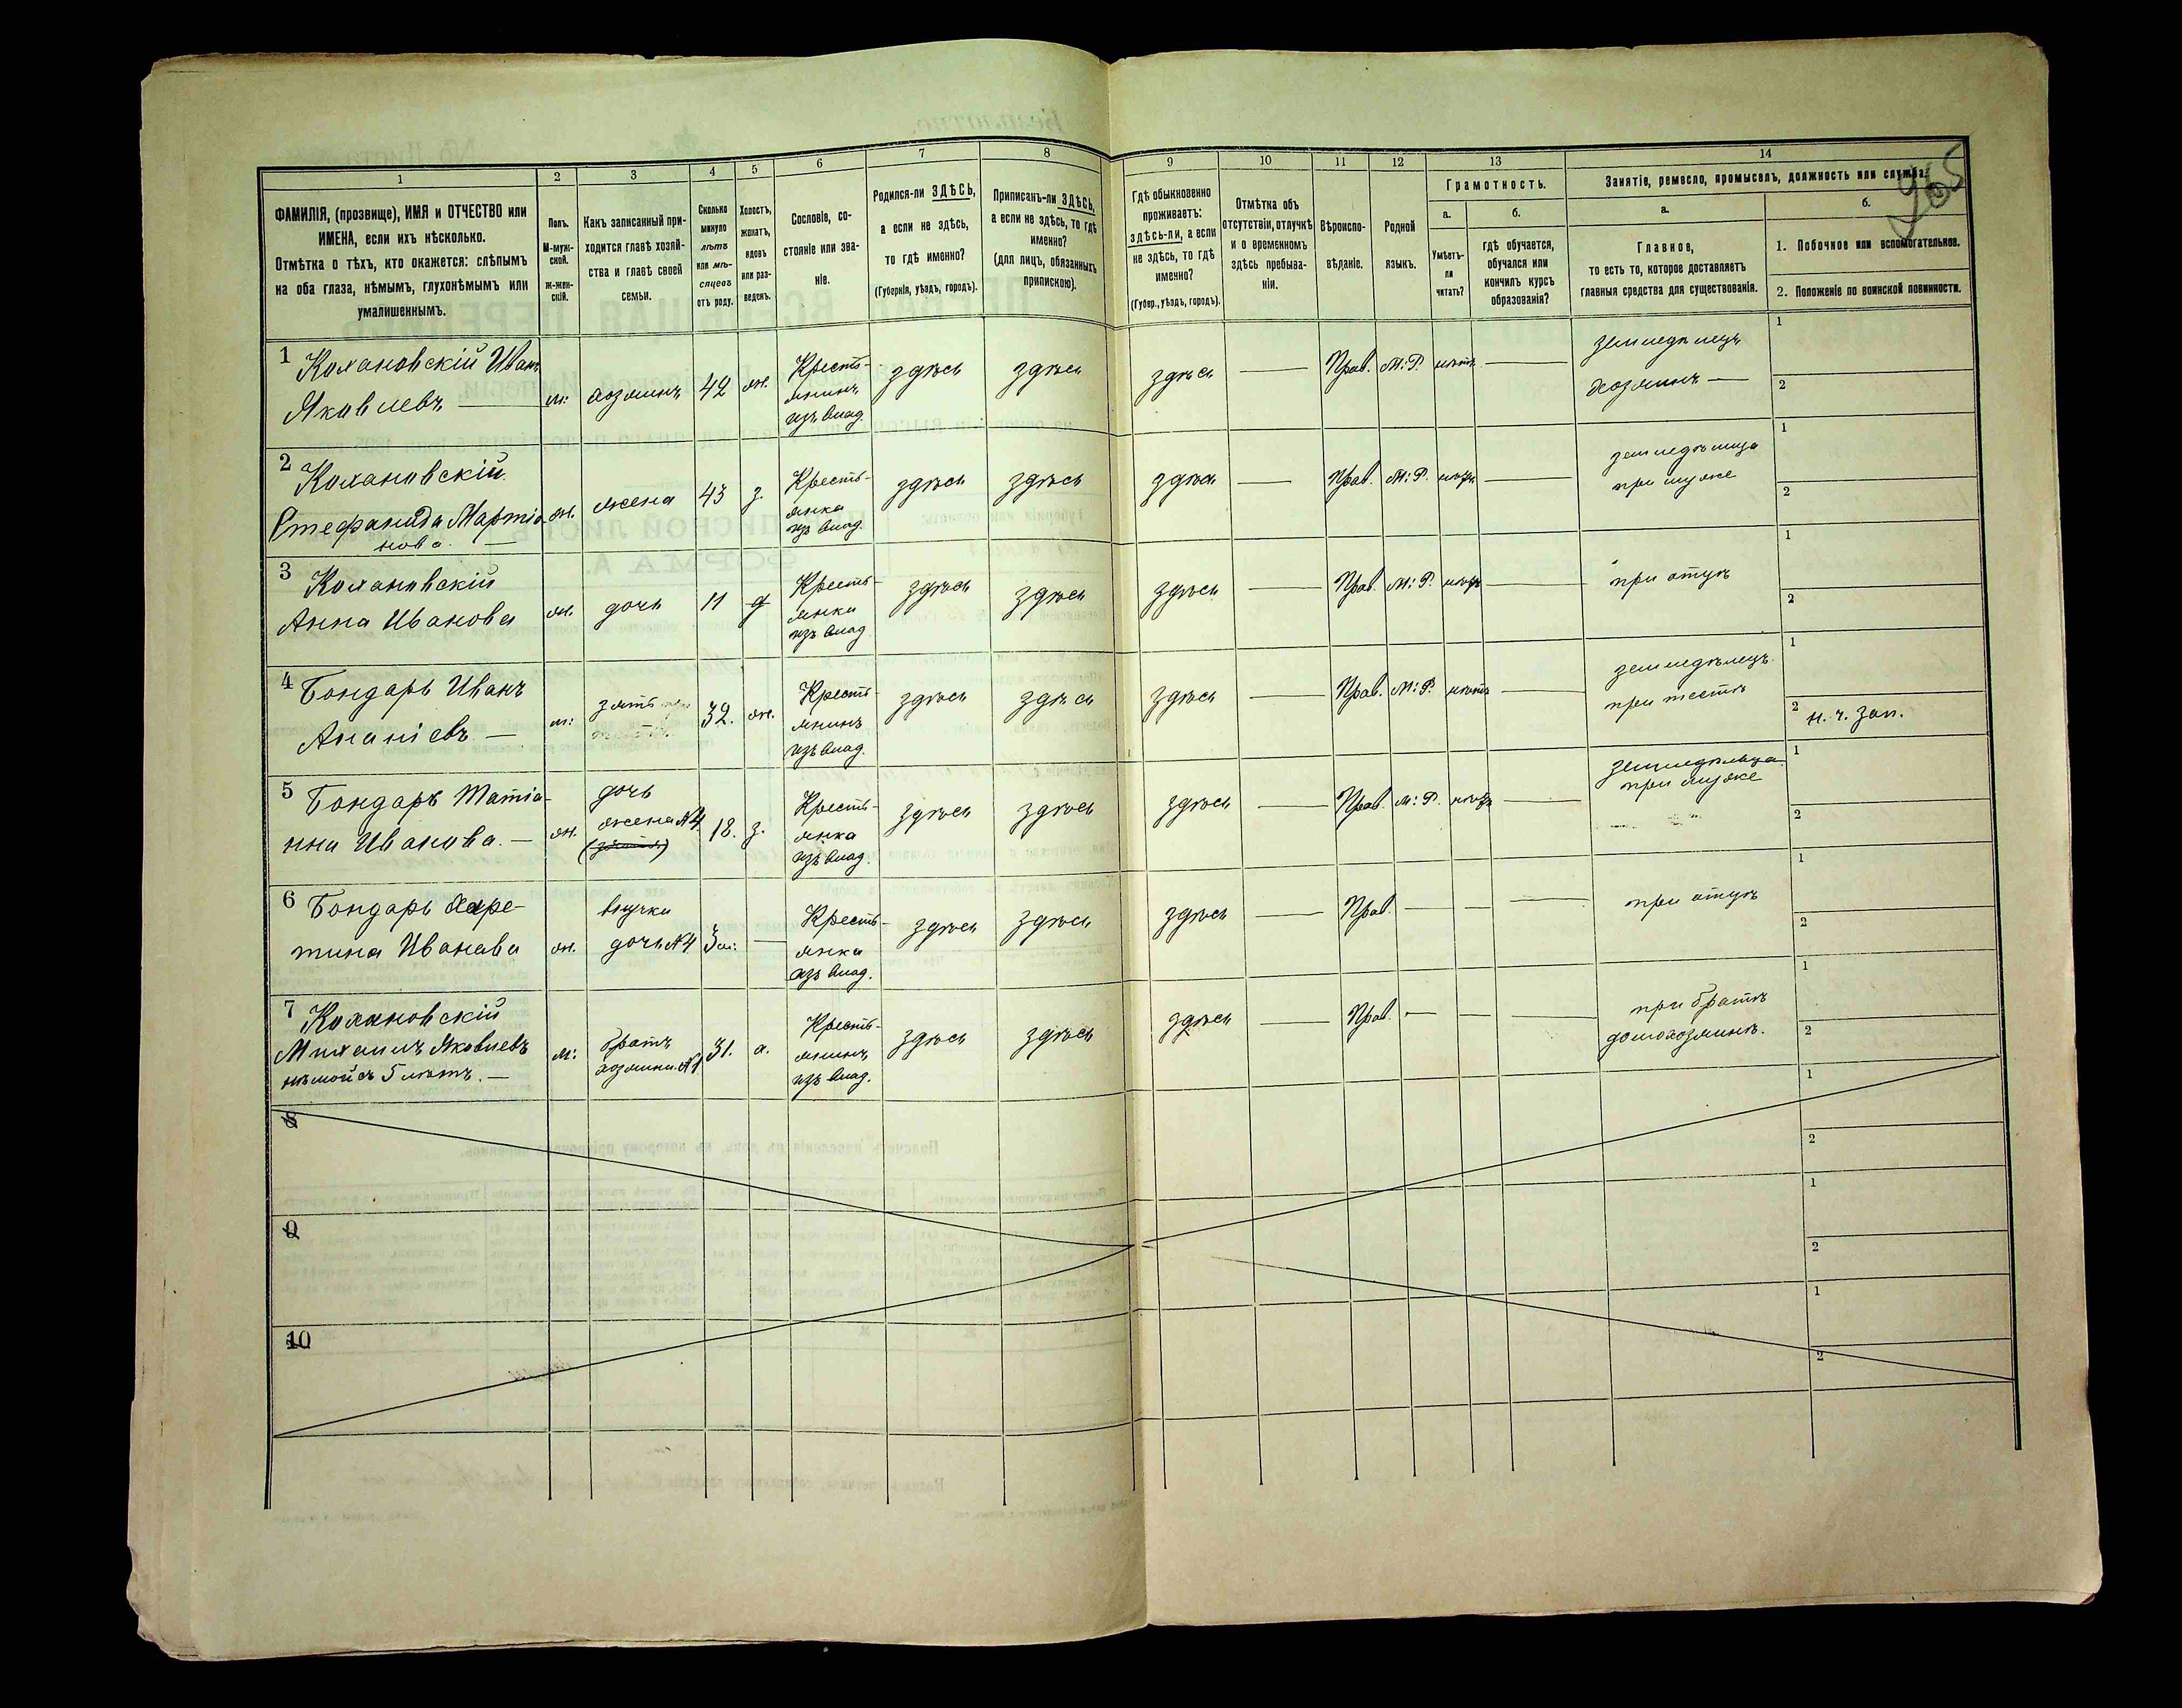 1
2
3
4
5
6
7
8
9
10
11
12
13
14
ФАМИЛІЯ, (прозвище), ИМЯ и ОТЧЕСТВО или
ИМЕНА, если ихъ нѣсколько.
Отмѣтка о тѣхъ, кто окажется: слѣпымъ
на оба глаза, нѣмымъ, глухонѣмымъ или
умалишеннымъ.
Полъ.
М-муж-
ской.
ж-жен-
скій.
Какъ записанный при-
ходится главѣ хозяй-
ства и главѣ своей
семьи.
Сколько
минуло
лѣтъ
или мѣ-
сяцевъ
отъ роду.
Холостъ,
женатъ,
вдовъ
или раз-
веденъ.
Сословіе, со-
стояніе или зва-
ніе.
Родился-ли ЗДѢСЬ,
а если не здѣсь,
то гдѣ именно?
(Губернія, уѣздъ, городъ).
Приписанъ-ли ЗДѢСЬ,
а если не здѣсь, то гдѣ
именно?
(для лицъ, обязанныхъ
припискою).
Гдѣ обыкновенно
проживаетъ:
здѣсь-ли, а если
не здѣсь, то гдѣ
именно?
(Губер., уѣздъ, городъ).
Отмѣтка объ
отсутствіи, отлучкѣ
и о временномъ
здѣсь пребыва-
ніи.
Вѣроиспо-
вѣданіе.
Родной
языкъ.
Грамотность.
а.
б.
Умѣетъ-
ли
читать?
гдѣ обучается,
обучался или
кончилъ курсъ
образованія?
Занятіе, ремесло, промыселъ, должность или служба.
а.
б.
Главное,
то есть то, которое доставляетъ
главныя средства для существованія.
1. Побочное или вспомогательное.
2. Положеніе по воинской повинности.
1 Кохановскій Иванъ
Яковлевъ —
м:
хозяинъ
42
ж.
Кресть-
янинъ
изъ влад.
здѣсь
здѣсь
здѣсь
—
Прав.
М:Р.
нѣтъ
—
земледѣлецъ
хозяинъ —
1
2
2 Кохановскій
Стефанида Мартіа
нова. —
ж.
жена
43
з.
Кресть-
янка
изъ влад.
здѣсь
здѣсь
здѣсь
—
Прав.
М:Р.
нѣтъ
—
земледѣлица
при мужѣ
1
2
3 Кохановскій
Анна Иванова
ж.
дочь
11
д
Кресть-
янка
изъ влад.
здѣсь
здѣсь
здѣсь
—
Прав.
М:Р.
нѣтъ
—
при отцѣ
1
2
4 Бондарь Иванъ
Ананіевъ —
м:
зять
32.
ж.
Кресть-
янинъ
изъ влад.
здѣсь
здѣсь
здѣсь
—
Прав.
М:Р.
нѣтъ
—
земледѣлецъ
при тестѣ
1
2 н. ч. зап.
5 Бондарь Татіа-
нна Иванова. —
ж.
дочь
жена №4
18.
з.
Кресть-
янка
изъ влад.
здѣсь
здѣсь
здѣсь
—
Прав.
М:Р.
нѣтъ
—
земледѣлица
при мужѣ
1
2
6 Бондарь Харе-
тина Иванова
ж.
внучка
дочь №4
3 м:
—
Кресть-
янка
изъ влад.
здѣсь
здѣсь
здѣсь
—
Прав.
—
—
—
при отцѣ
1
2
7 Кохановскій
Михаилъ Яковлевъ
нѣмой съ 5 лѣтъ. —
м:
братъ
хозяина №1
31.
х.
Кресть-
янинъ
изъ влад.
здѣсь
здѣсь
здѣсь
—
Прав.
—
—
—
при братѣ
домохозяинѣ.
1
2
8
1
2
9
1
2
10
1
2